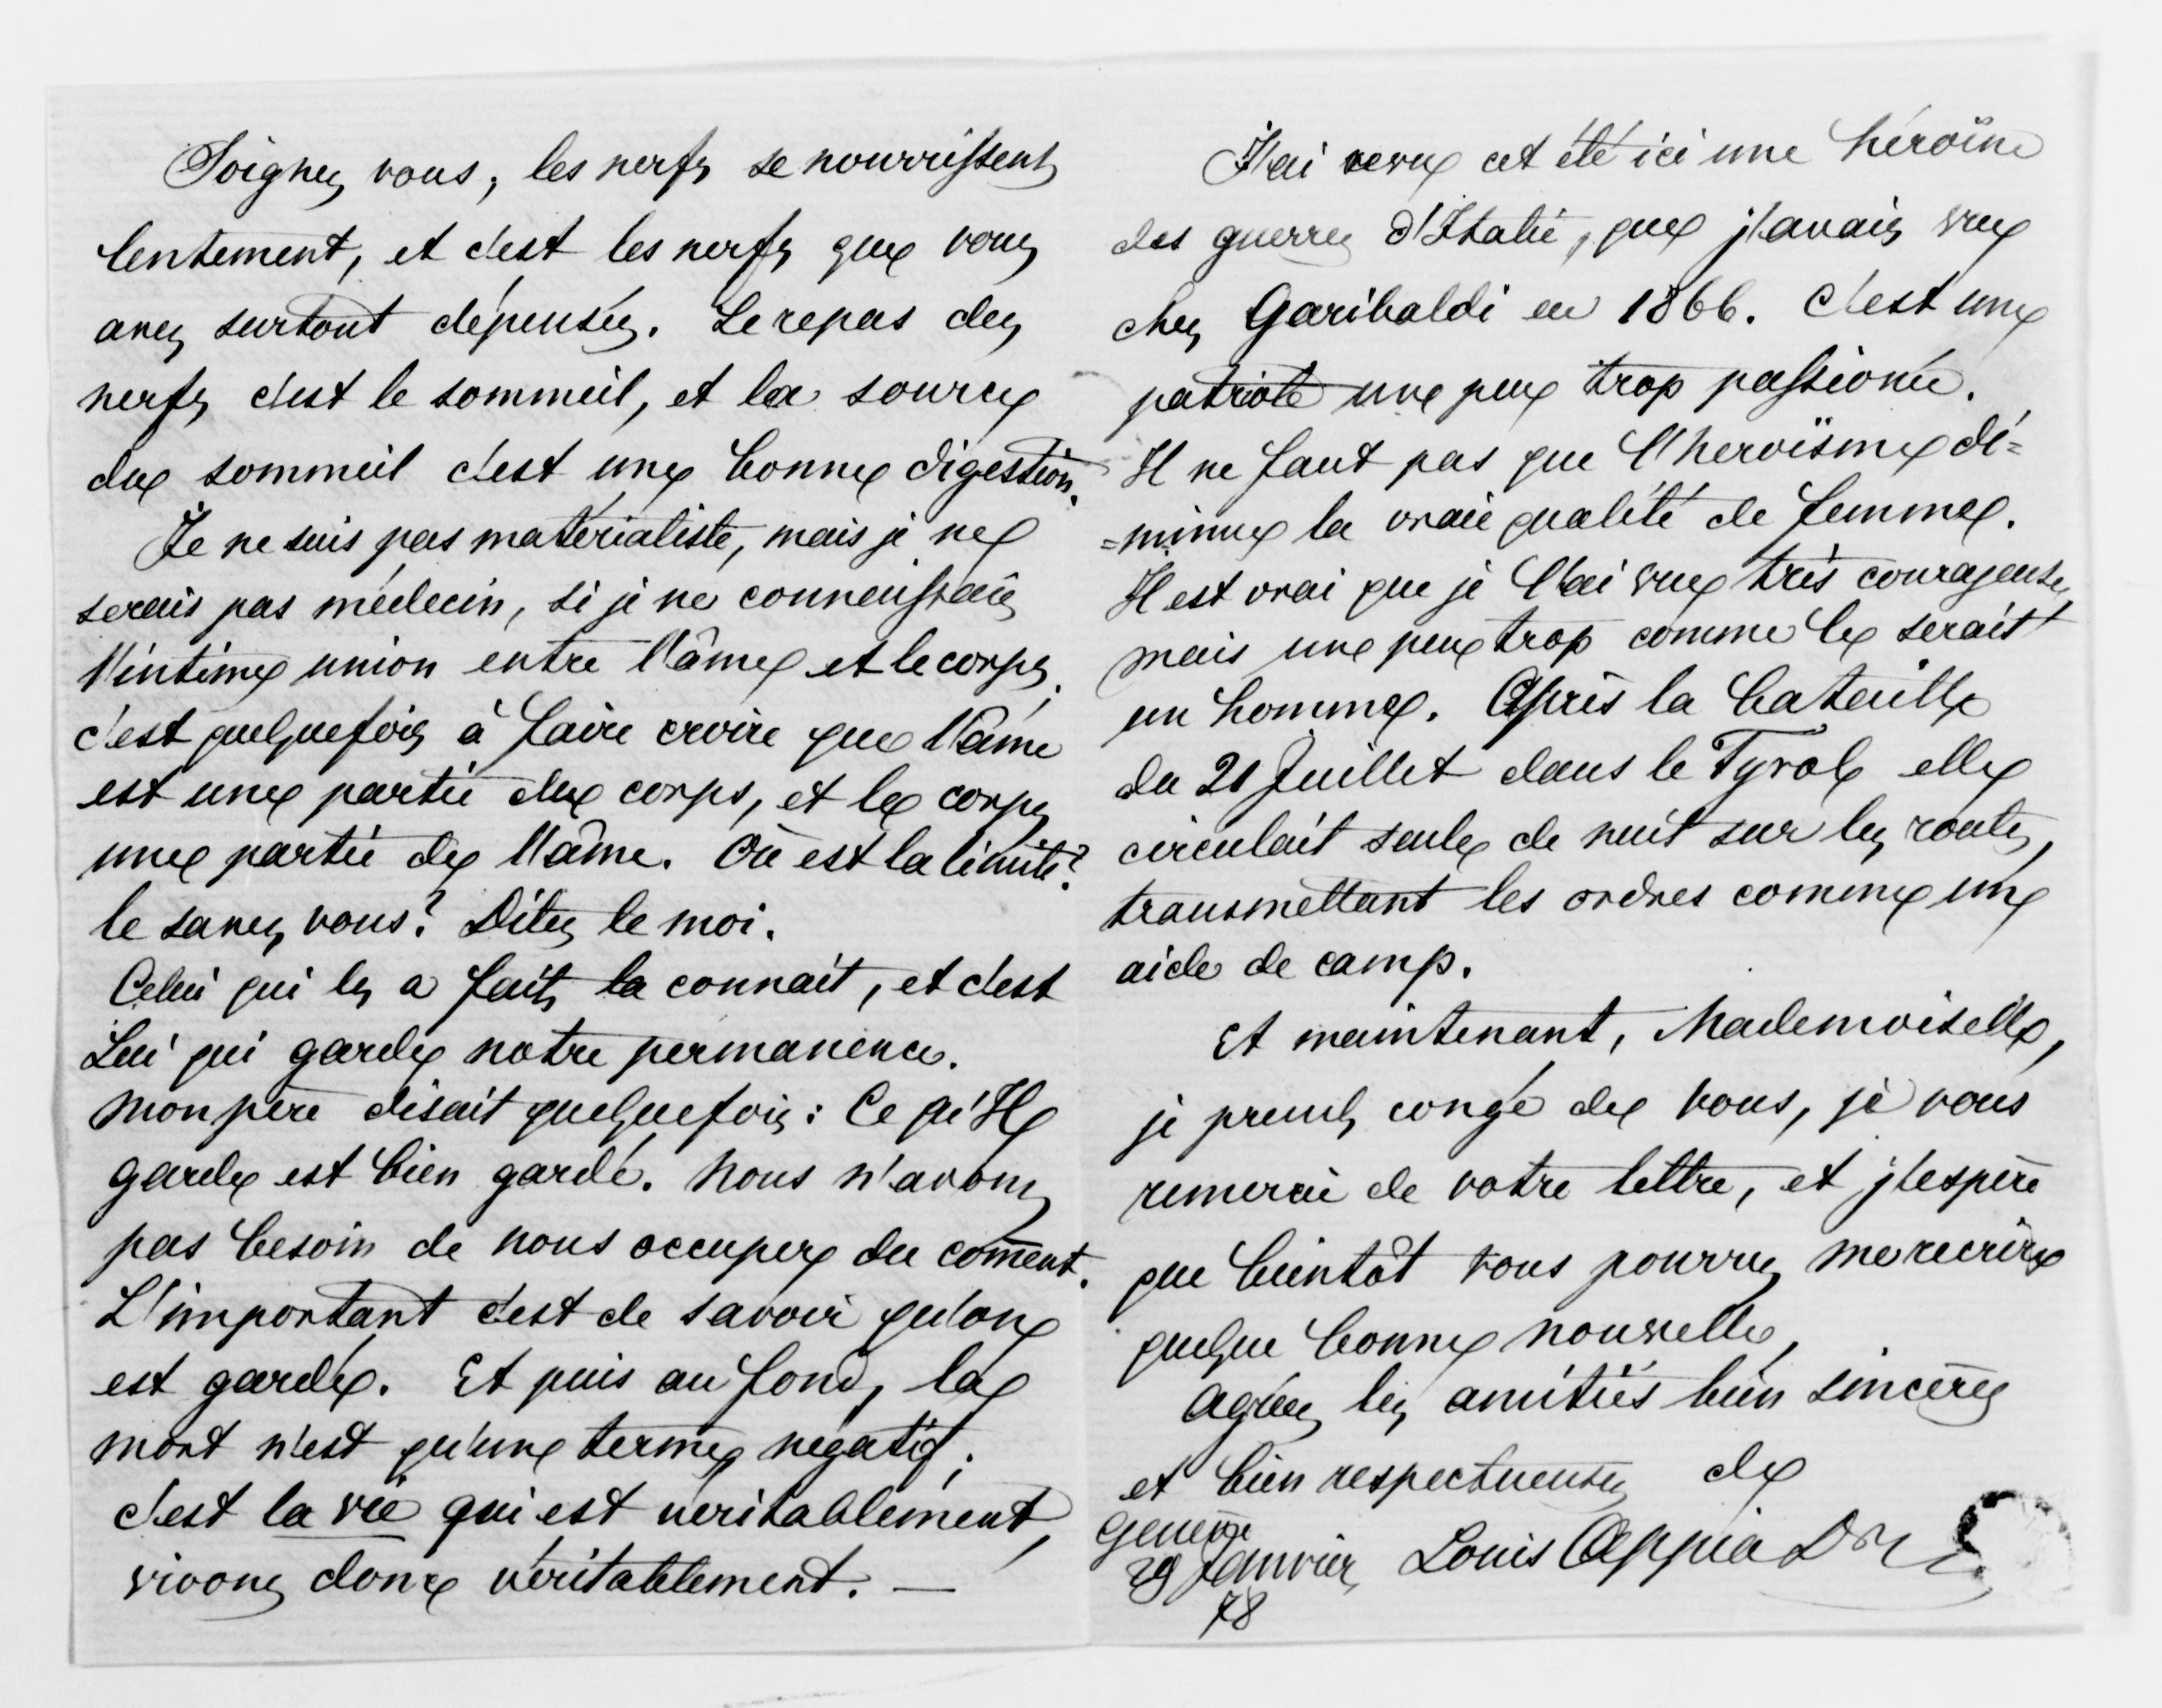 Soignez vous, les nerfs se nourrissent
lentement, et c'est les nerfs que vous
avez surtout dépensés. Le repas des
nerfs c'est le sommeil, et la source
du sommeil c'est une bonne digestion.
Je ne suis pas matérialiste, mais je ne
serais pas médecin, si je ne connaissais
l'intime union entre l'âme et le corps.
c'est quelquefois à faire croire que l'âme
est une partie du corps, et le corps
une partie de l'âme. Où est la limite?
le savez vous? Dites le moi.
Celui qui les a faits la connait, et c'est
Lui qui garde notre permanence.
Mon père disait quelquefois: Ce qu'Il
garde est bien gardé. Nous n'avons
pas besoin de nous occuper du coment.
L'important c'est de savoir qu'on
est gardé. Et puis au fond, la
mort n'est qu'un terme négatif;
c'est la vie qui est véritablement,
vivons donc véritablement. —
J'ai revu cet été ici une héroïne
des guerres d'Italie, que j'avais vue
chez Garibaldi en 1866. C'est une
patriote un peu trop passionée.
Il ne faut pas que l'héroïsme di=
=minue la vraie qualité de femme.
Il est vrai que je l'ai vue très courageuse,
mais un peu trop comme le serait
un homme. Après la bataille
du 21 Juillet dans le Tyrol elle
circulait seule de nuit sur les routes,
transmettant les ordres comme un
aide de camp.
Et maintenant, Mademoiselle,
je prends congé de vous, je vous
remercie de votre lettre, et j'espère
que bientôt vous pourrez me recrire
quelque bonne nouvelle,
Agréez les amitiés bien sincères
et bien respectueuses de
Genève
29 Janvier Louis Appia Dr
78